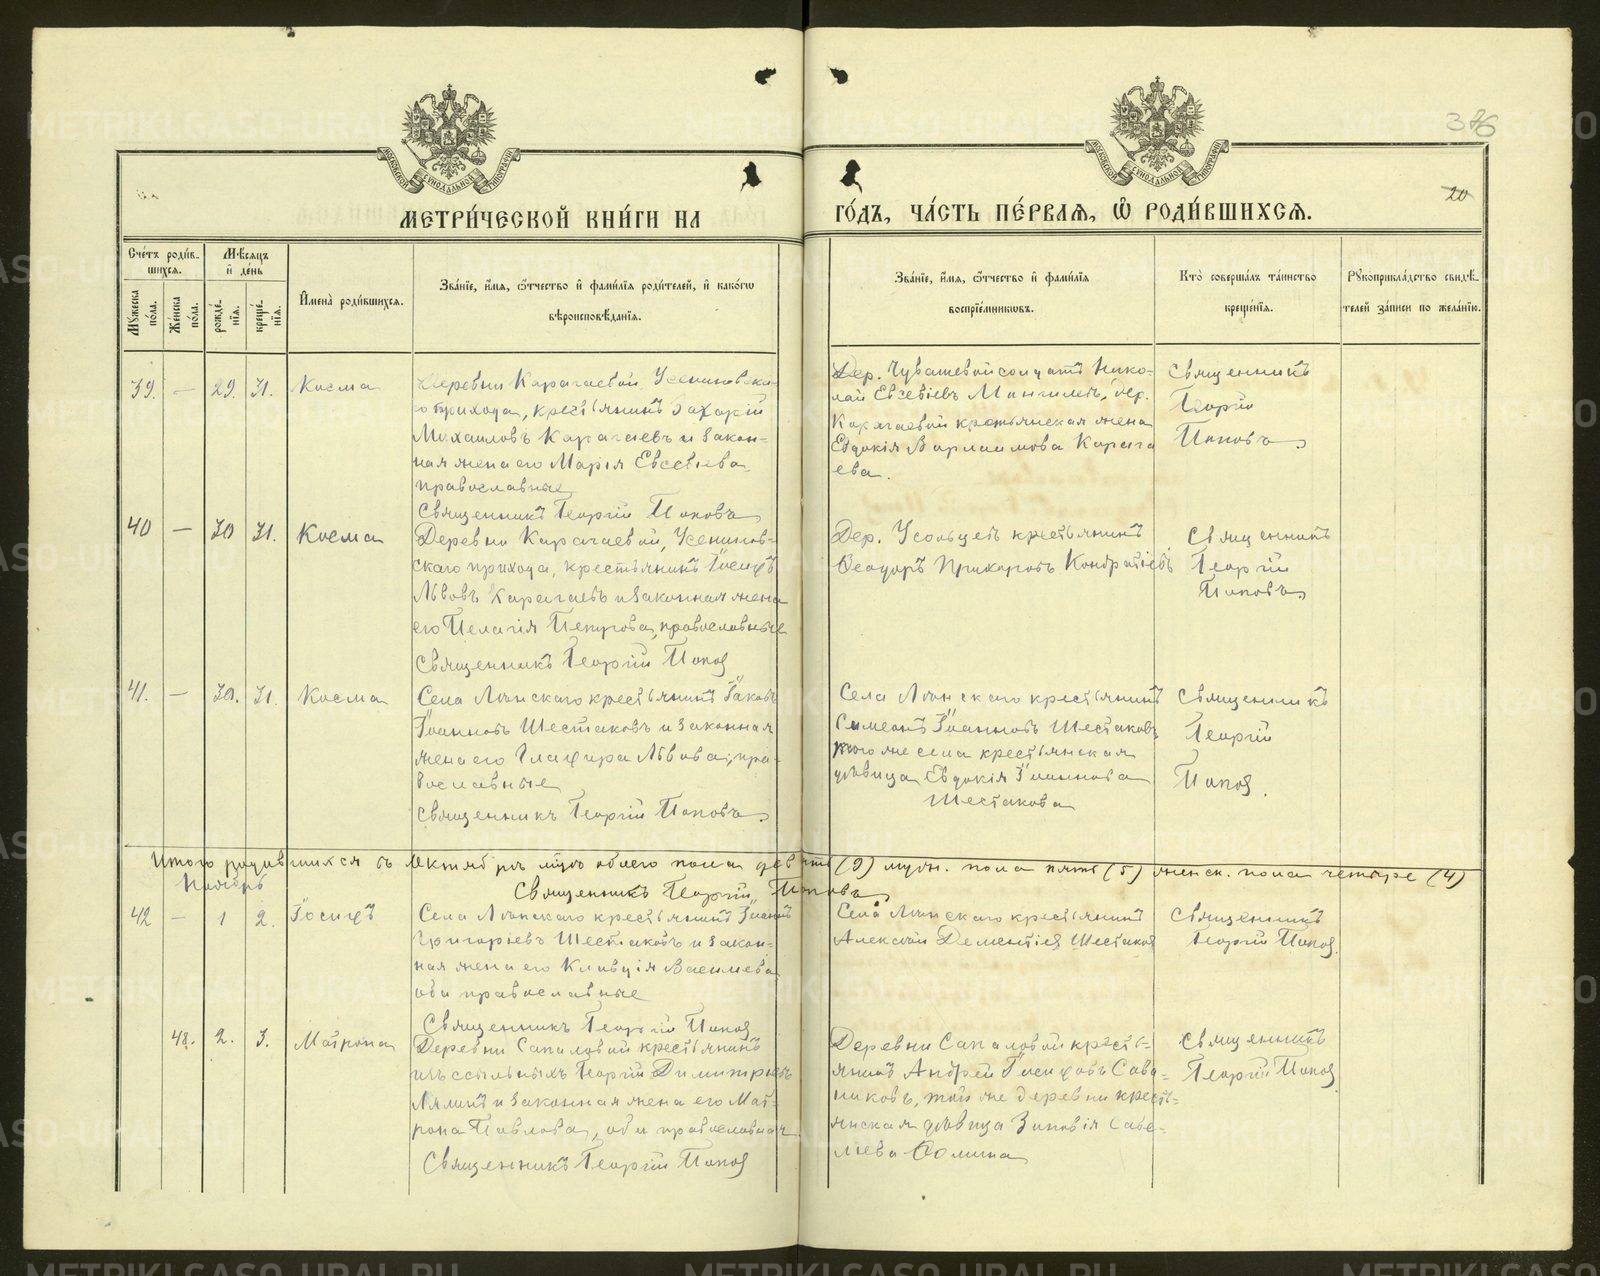 376
20
МОСКОВСКОЙ СѴНОДАЛЬНОЙ ТИПОГРАФІИ
МОСКОВСКОЙ СѴНОДАЛЬНОЙ ТИПОГРАФІИ
МЕТРИ́ЧЕСКОЙ КНИ́ГИ НА
ГО́ДЪ, ЧА́СТЬ ПЕ́РВАѦ, Ѡ РОДИ́ВШИХСѦ.
Сче́тъ роди́в-
шихсѧ.
Мѣ́сѧцъ
и҆ де́нь
Мꙋ́жеска по́ла.
Же́нска по́ла.
рожде́-нїѧ.
креще́-нїѧ.
И҆мена̀ роди́вшихсѧ.
Зва́нїе, и҆́мѧ, ѻ҆́тчество и҆ фами́лїѧ роди́телей, и҆ како́гѡ
вѣроисповѣ́данїѧ.
Зва́нїе, и҆́мѧ, ѻ҆́тчество и҆ фами́лїѧ
воспрїе́мникѡвъ.
Кто̀ соверша́лъ та́инство
креще́нїѧ.
Рꙋкоприкла́дство свидѣ́-
телей за́писи по жела́нїю.
39. — 29. 31. Косма
Деревни Карагаевой, Усениновска-
го прихода, крестьянинъ Захарій
Михаиловъ Карагаевъ и закон-
ная жена его Марія Евсевіева
православные
Священникъ Георгій Поповъ
Дер. Чувашевой солдатъ Нико-
лай Евсевіевъ дер.
Карагаевой крестьянская жена
Евдокія Варлаамова Карага
ева.
Священникъ
Георгій
Поповъ
40 — 30 31. Косма
Деревни Карагаевой, Усенинов-
скаго прихода, крестьянинъ Іосифъ
Львовъ Карагаевъ и законная жена
его Пелагія Петрова, православные
Священникъ Георгій Попов
Дер. Усольцевъ крестьянинъ
Ѳеодоръ Прохоровъ Кондратіевъ
Священникъ
Георгій
Поповъ
41. — 30. 31. Косма
Села крестьянинъ Іаковъ
Іоанновъ Шестаковъ и законная
жена его Глафира Львова, пра-
вославные
Священникъ Георгій Поповъ
Села крестьянинъ
Симеонъ Іоанновъ Шестаковъ
того же села крестьянская
дѣвица Евдокія Іоаннова
Шестакова
Священникъ
Георгій
Попов.
Итого родившихся въ Октябрѣ муж обоего пола девять (9) мужс. пола пять (5) женск. пола четыре (4)
Священникъ Георгій Поповъ
Ноябрь
42 — 1 2. Іосифъ
Села крестьянинъ Іоаннъ
Григорьевъ Шестаковъ и закон-
ная жена его Клавдія Васильева
оба православные
Священникъ Георгій Попов
Села крестьянинъ
Алексѣй Дементіев Шестаков
Священникъ
Георгій Попов
48. 2. 3. Матрона
Деревни Сапаловой крестьянинъ
изъ ссыльныхъ Георгій Димитріевъ
Лялинъ и законная жена его Мат-
рона Павлова, оба православная
Священникъ Георгій Попов
Деревни Сапаловой кресть-
янинъ Андрей Іосифовъ Сав-
никовъ, той же деревни кресть-
янская дѣвица Зиновія Саве-
льева Ѳомина
Священникъ
Георгій Попов